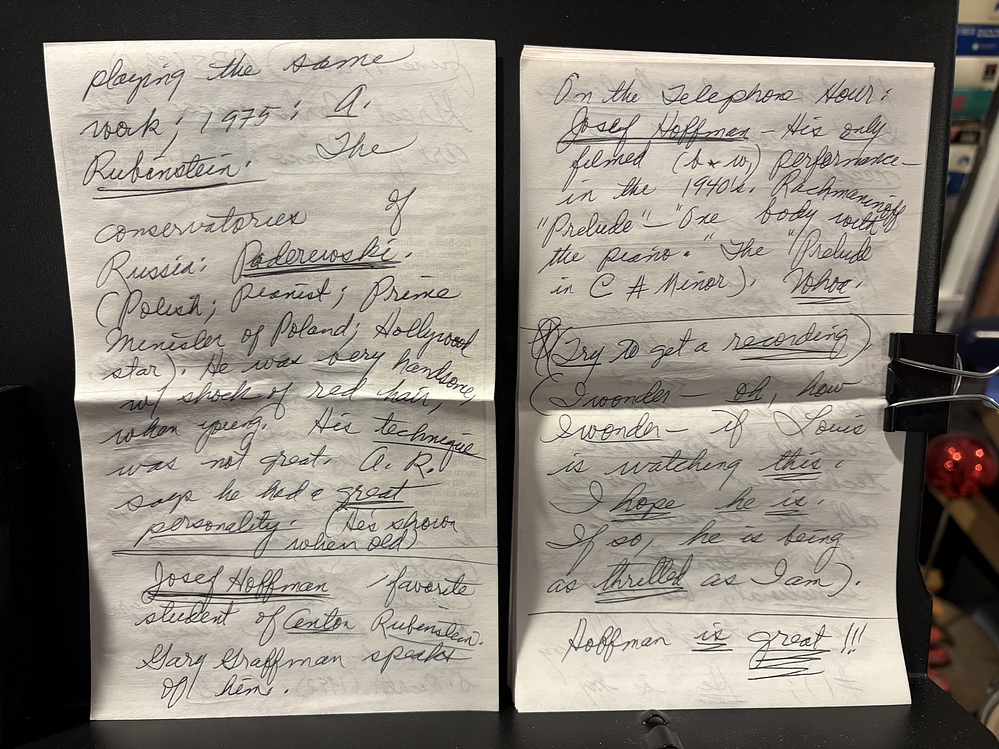 playing the same
work; 1975: A.
Rubinstein. The
conservatories of
Russia: Paderewski.
(Polish; pianist; Prime
Minister of Poland; Hollywood
star). He was very handsome,
w/ shock of red hair,
when young. His technique
was not great. A. R.
says he had a great
personality. (He's shown
when old)
Josef Hoffman, favorite
student of Anton Rubinstein.
Gary Graffman speaks
of him.
On the Telephone Hour:
Josef Hoffman - His only
filmed (b & w) performance -
in the 1940's. Rachmaninoff
"Prelude" - "One body with
the piano." The "Prelude
in C # Minor). Whoa.
(Try to get a recording).
(I wonder - oh, how
I wonder - if Louis
is watching this.
I hope he is.
If so, he is being
as thrilled as I am).
Hoffman is great!!!